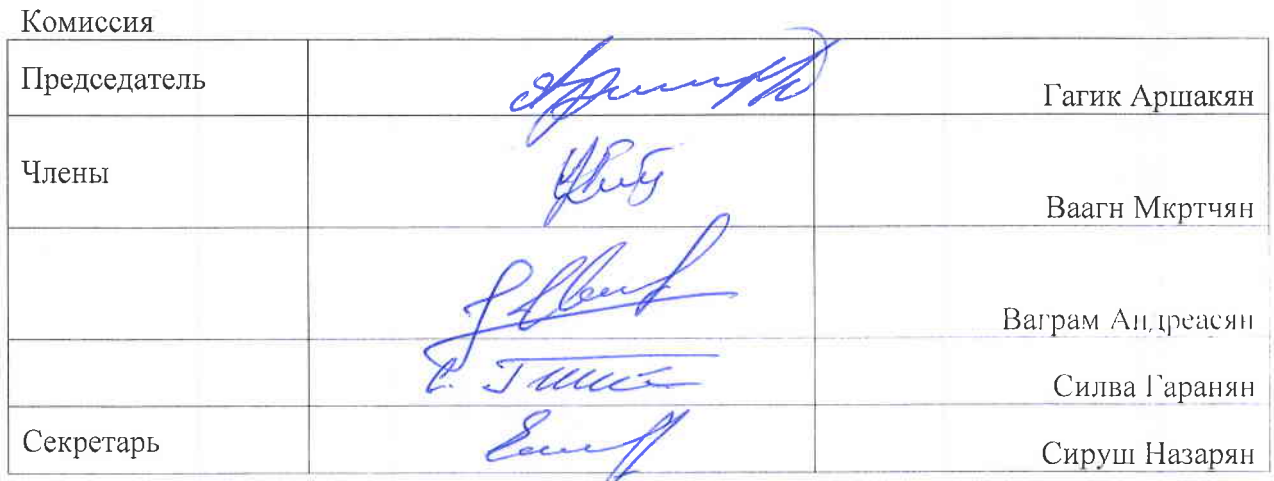 Комиссия
Председатель Гагик Аршакян
Члены Ваагн Мкртчян
Ваграм Андреасян
Силва Гаранян
Секретарь Сируш Назарян